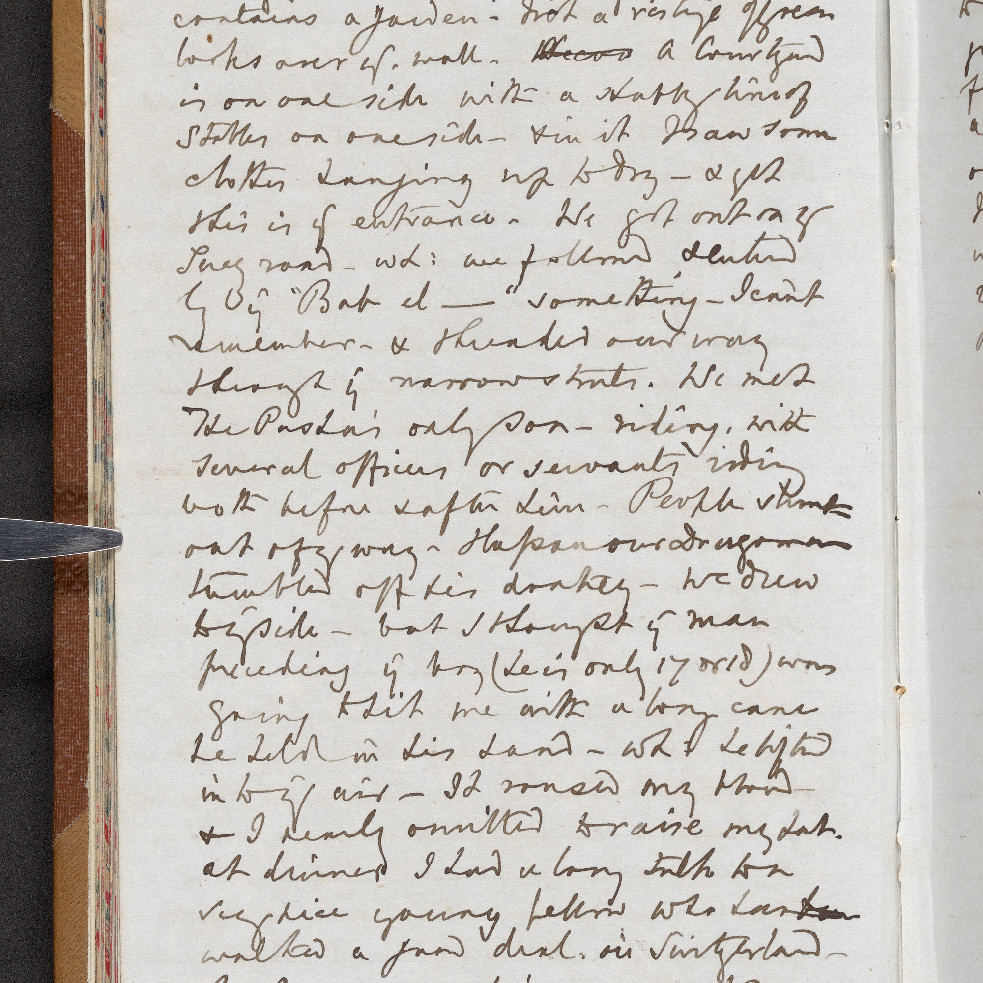 contains a garden - Not a vestige of green
looks over ye. wall - A Courtyard
is on one side with a shabby line of
Stables on one side - & in it I saw some
clothes hanging up to dry - & yet
this is ye entrance - We got out on ye
Suez road - wh: we followed & entered
by ye "Bab el —" something - I can't
remember - & threaded our way
through ye narrow streets. We met
The Pasha's only son - riding, with
several officers or servants riding
both before & after him - People
out of ye way - Hassan our dragoman
tumbled off his donkey - We drew
to ye side - but I thought ye man
preceding ye boy (he is only 17 or 18) was
going to hit me with a long cane
he held in his hand - wh: he lifted
into ye air - It roused my blood
& I nearly omitted to raise my hat.
at dinner I had a long talk to a
very nice young fellow who has
walked a good deal in Switzerland -